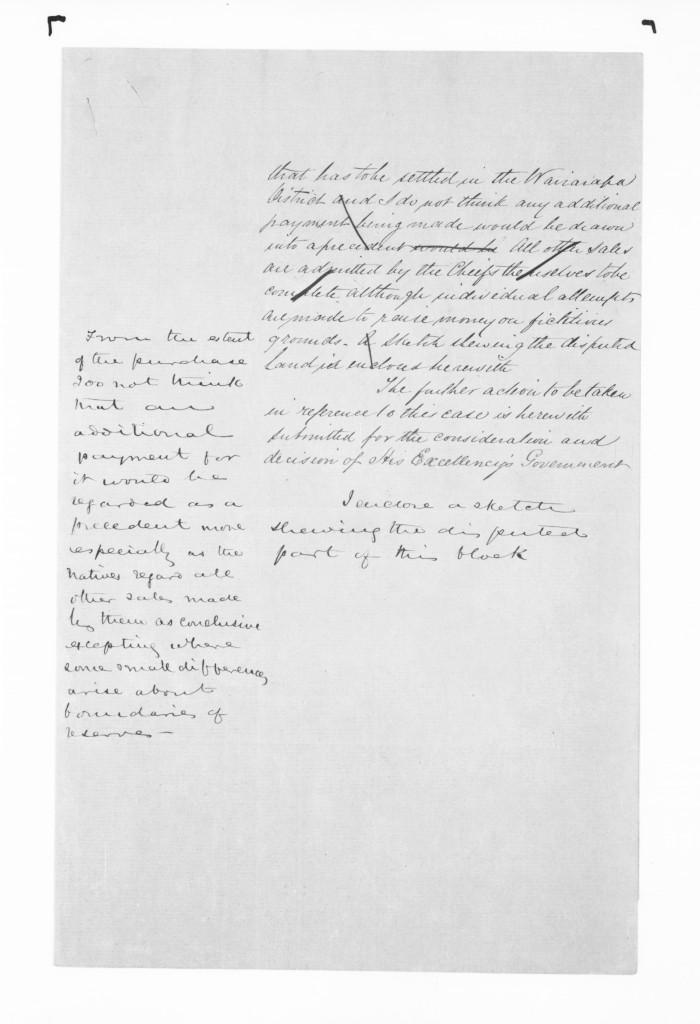 that has to be settled in the Wairarapa
District and I do not think any additional
payment being made would be drawn
into a precedent would be All other sales
are admitted by the Chiefs themselves to be
complete although individual attempts
are made to raise money on fictitious
grounds. A sketch shewing the disputed
Land is enclosed herewith
The further action to be taken
in reference to this case is herewith
submitted for the consideration and
decision of His Excellency's Government
I enclose a sketch
shewing the disputed
part of this block
From the extent
of the purchase
I do not think
that an
additional
payment for
it would be
regarded as a
precedent more
especially as the
Natives regard all
other sales made
by them as conclusive
excepting where
some small differences
arise about
boundaries of
reserves—